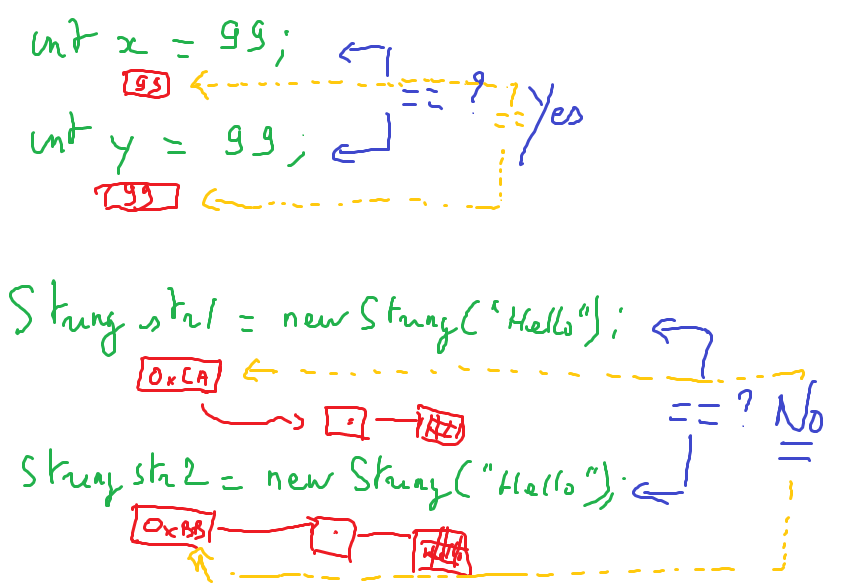 int x = 99;
99
== ? Yes
==
int y = 99;
99
String str1 = new String("Hello");
0xCA
== ? No
String str2 = new String("Hello");
0xBB